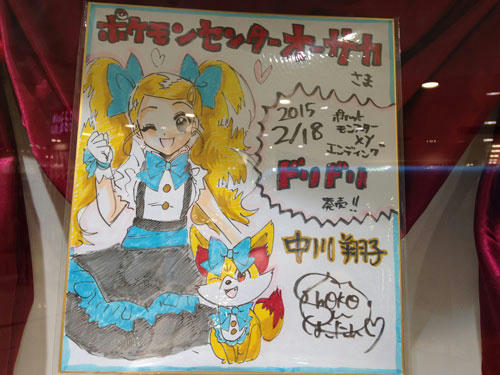 ポケモンセンターオーサカ
さま
2015
2/18
ポケット
モンスター
XY
エンディング
ドリドリ
発売!!
中川翔子